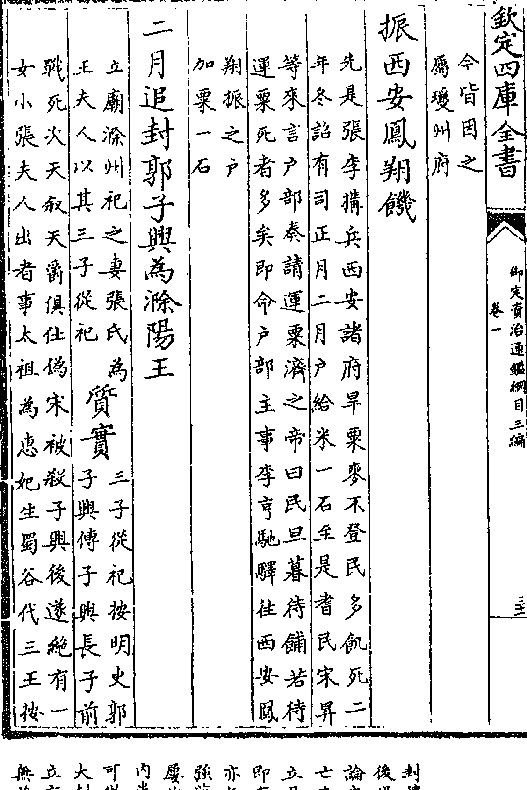 欽定四庫全書
御定資治通鑑綱目三編
卷一
今皆因之
屬瓊州府
振西安鳳翔饑
先是張李搆兵西安諸府旱粟麥不登民多飢死二
年冬詔有司正月二月户給米一石至是耆民宋昇
等來言户部奏請運粟濟之帝曰民旦暮待餔若待
運粟死者多矣即命户部主事李亨馳驛往西安鳳
翔振之户
加粟一石
二月追封郭子興為滁陽王
立廟滁州祀之妻張氏為
王夫人以其三子從祀
質實
三子從祀按明史郭
子興傳子興長子前
戰死次天叙天爵俱仕偽宋被殺子興後遂絶有一
女小張夫人出者事太祖為惠妃生蜀谷代三王按